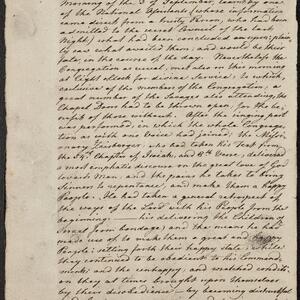 Morning of the 3d of September, learnt, by one
of the National Assistants, (whose information
came direct from a trusty Person, who had been
admitted to the secret Council of the last
Night) what had been concluded upon; plain,
ly saw what awaited them; and would be their
fate, in the course of the day. Nevertheless the
Congregation as usual, met also on this morning
at Eight oClock for divine Service; to which,
exclusive of the members of the Congregation, a
great number of the Savages also attending, the
Chapel Doors had to be thrown open, for the be=
nefit of those without. After the singing part
was performed, in which the whole Congrega=
tion as with one Voice had joined; the Mis=
sionary Zeisberger, who had taken his Text from
the 54th Chapter of Isaiah, and 8th Verse, delivered
a most impressive discourse on the great love of God
towards Man, and the pains he takes to bring
Sinners to repentance, and make them a happy
People. He had taken a general retrospect of
the ways of the Lord with his People from the
beginning: — his delivering the Children of
Israel from bondage; and the means he had
made use of to make them a great and happy
People: setting forth their happy state, while
they continued to be obedient to his Command=
ments; and the unhappy, and wretched condi=
tion they at times brought upon themselves
by their disobedience — by becoming distrustful